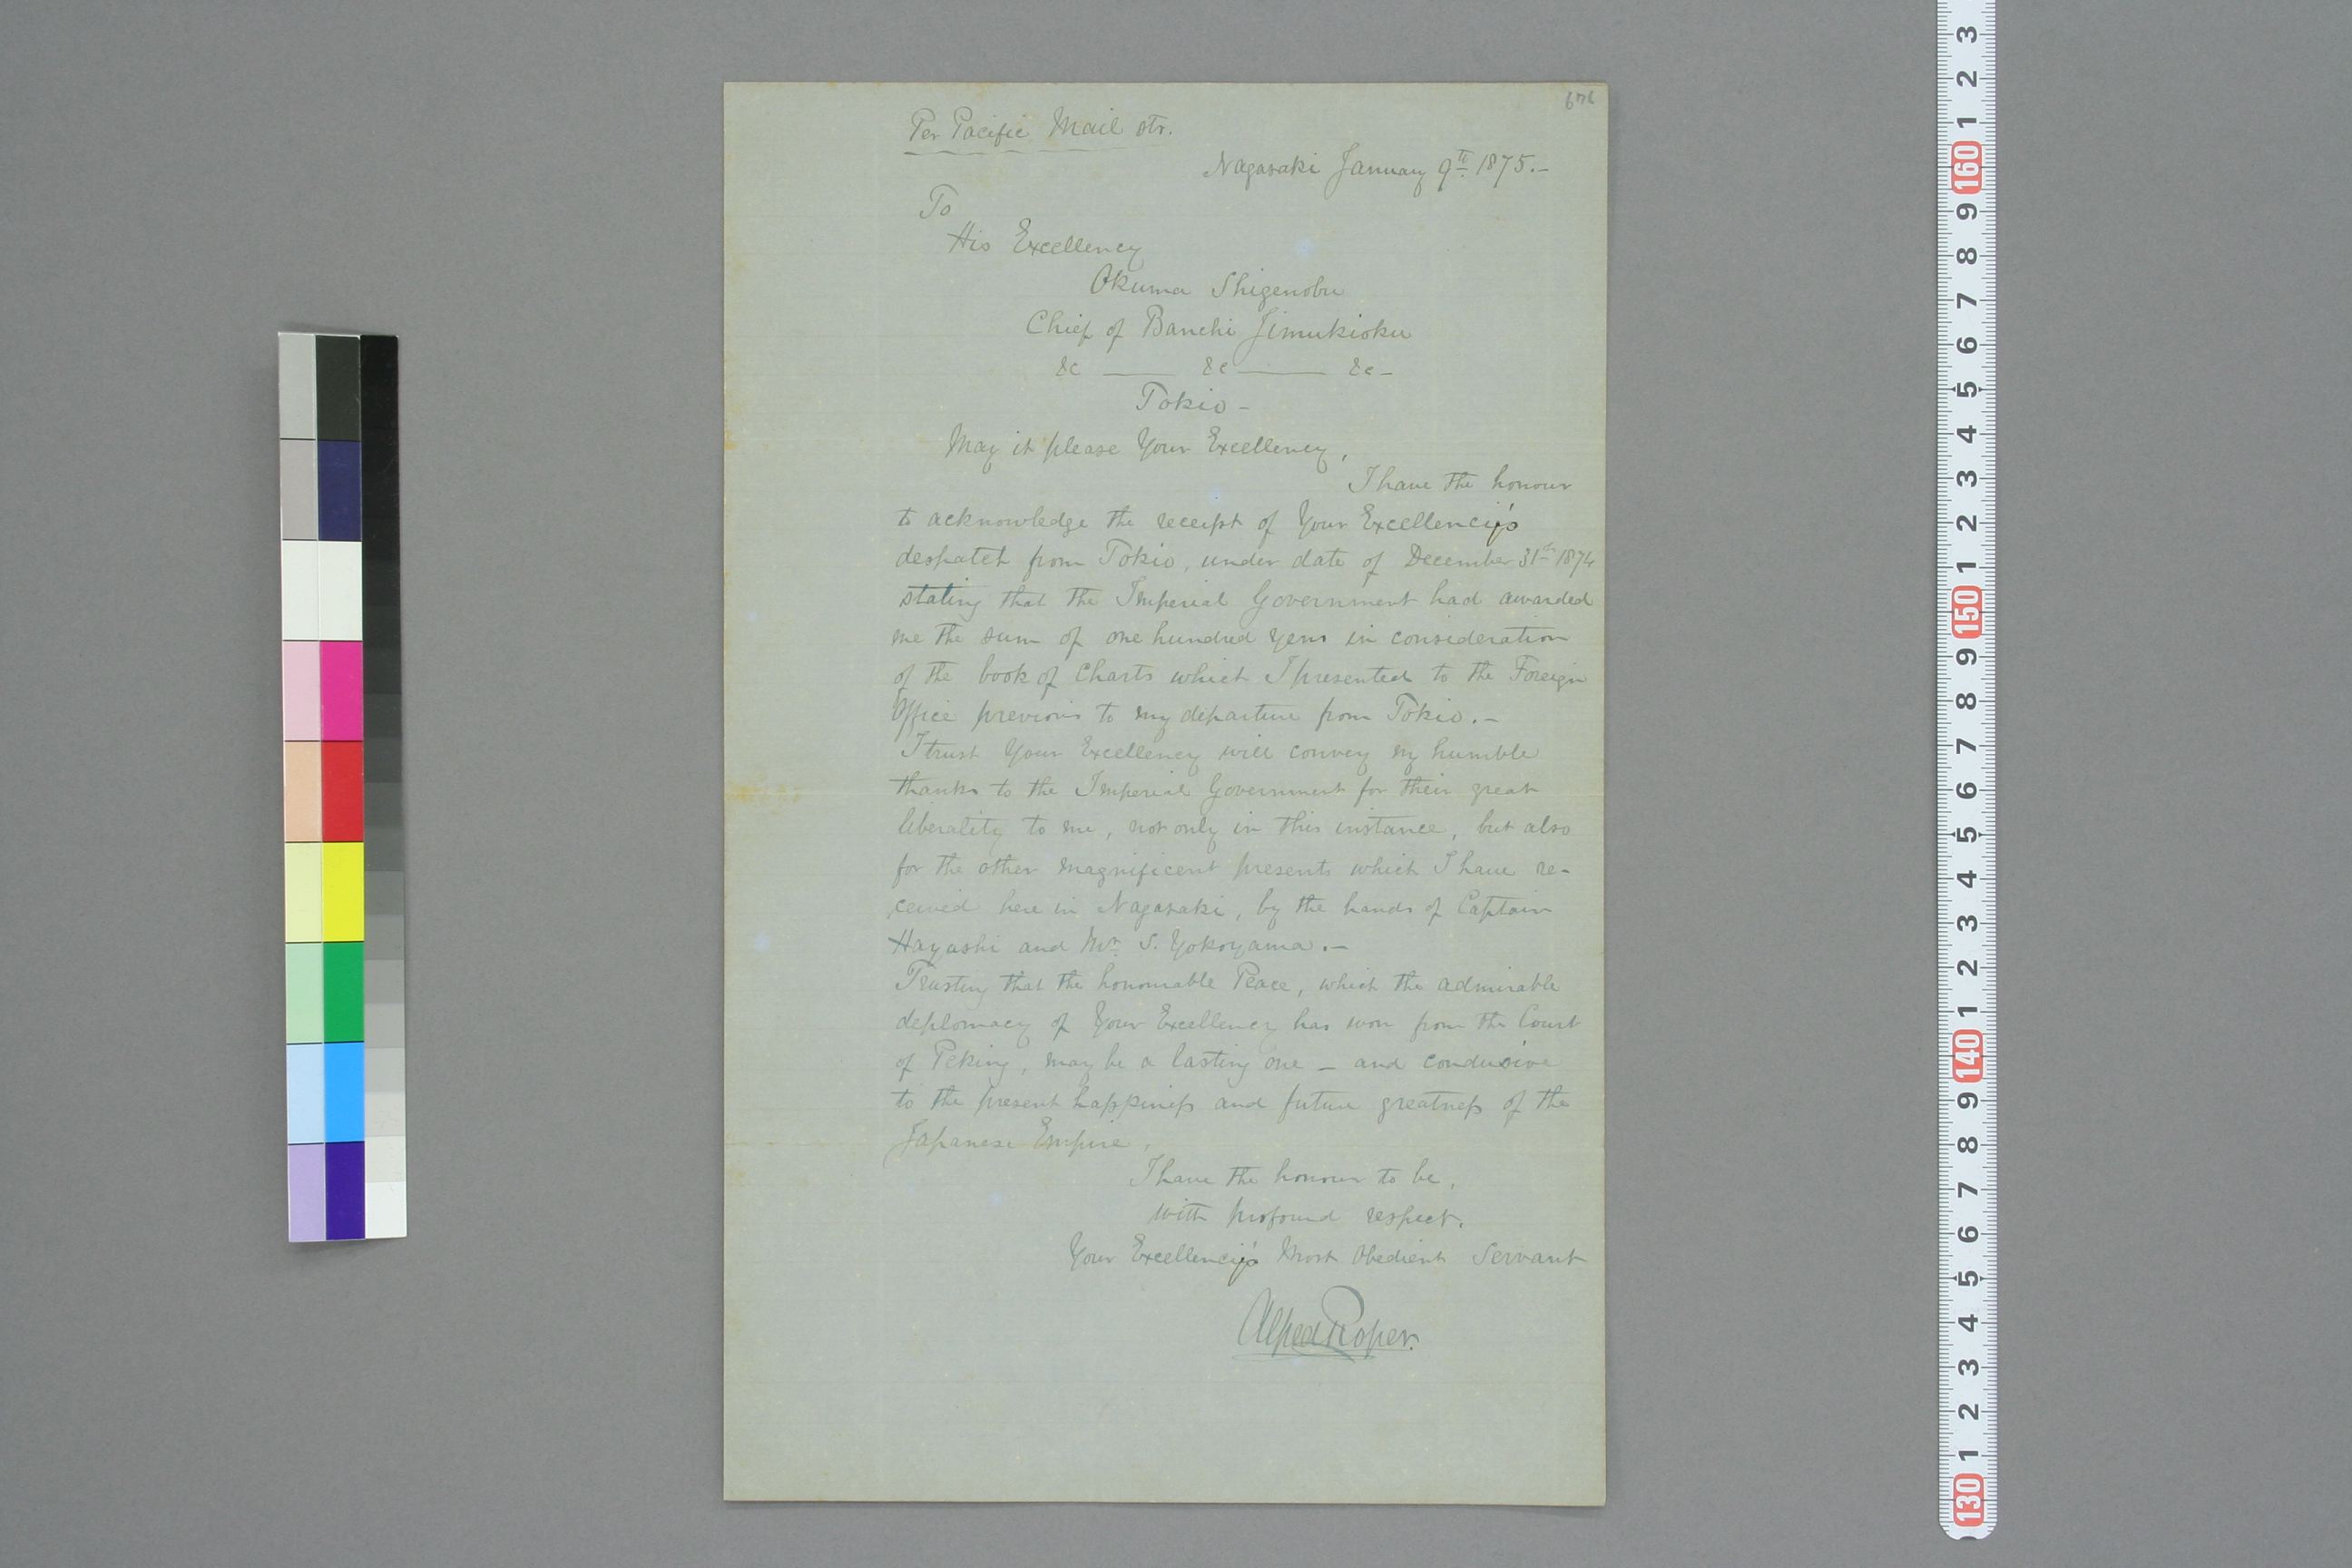 676
Per Pacific Mail str.
Nagasaki January 9th 1875.-
To
His Excellency
Okuma Shigenobu
Chief of Banchi Jimukioku
&c — &c — &c -
Tokio -
May it please Your Excellency,
I have the honour
to acknowledge the receipt of Your Excellency's
despatch from Tokio, under date of December 31st 1874
stating that the Imperial Government had awarded
me the sum of one hundred yens in consideration
of the book of Charts which I presented to the Foreign
Office previous to my departure from Tokio.-
I trust Your Excellency will convey my humble
thanks to the Imperial Government for their great
liberality to me, not only in this instance, but also
for the other magnificent presents which I have re-
ceived here in Nagasaki, by the hands of Captain
Hayashi and Mr S. Yokoyama.-
Trusting that the honourable Peace, which the admirable
deplomacy of Your Excellency has won from the Court
of Peking, may be a lasting one - and conducive
to the present happiness and future greatness of the
Japanese Empire,
I have the honour to be,
with profound respect,
Your Excellency's Most Obedient Servant
Alfred Roper.
3
2
1
160
9
8
7
6
5
4
3
2
1
150
9
8
7
6
5
4
3
2
1
140
9
8
7
6
5
4
3
2
1
130